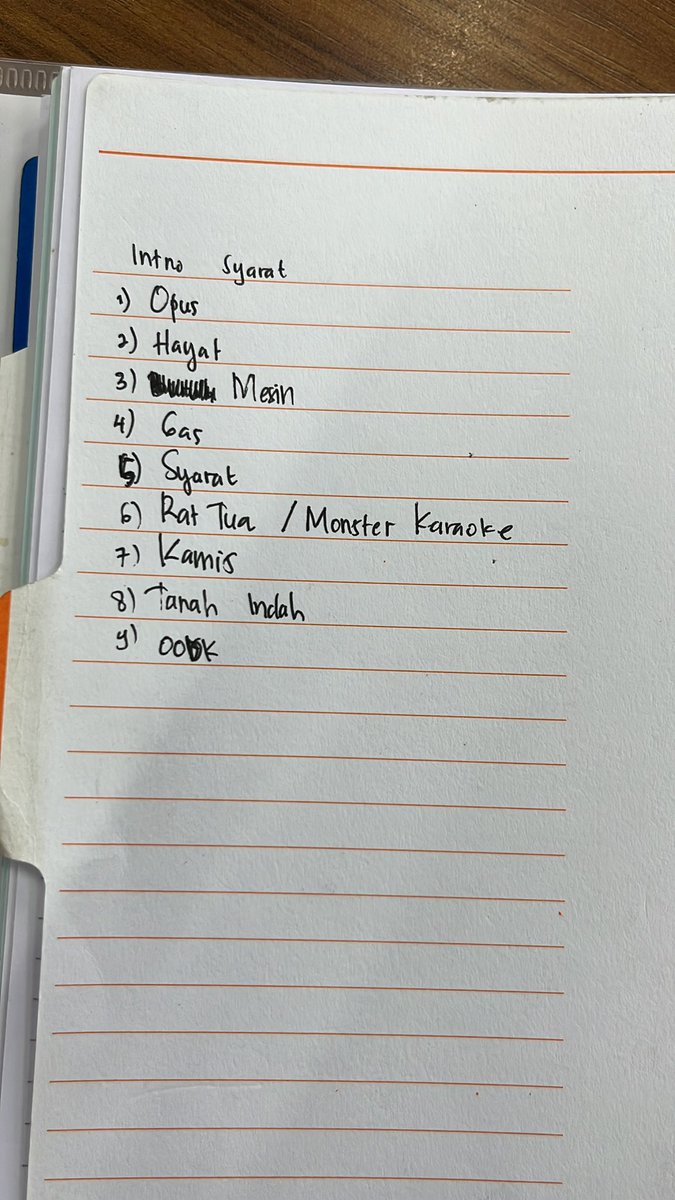 Intro Syarat
1) Opus
2) Hayat
3) Mesin
4) Gas
5) Syarat
6) Rat Tua / Monster Karaoke
7) Kamis
8) Tanah Indah
9)